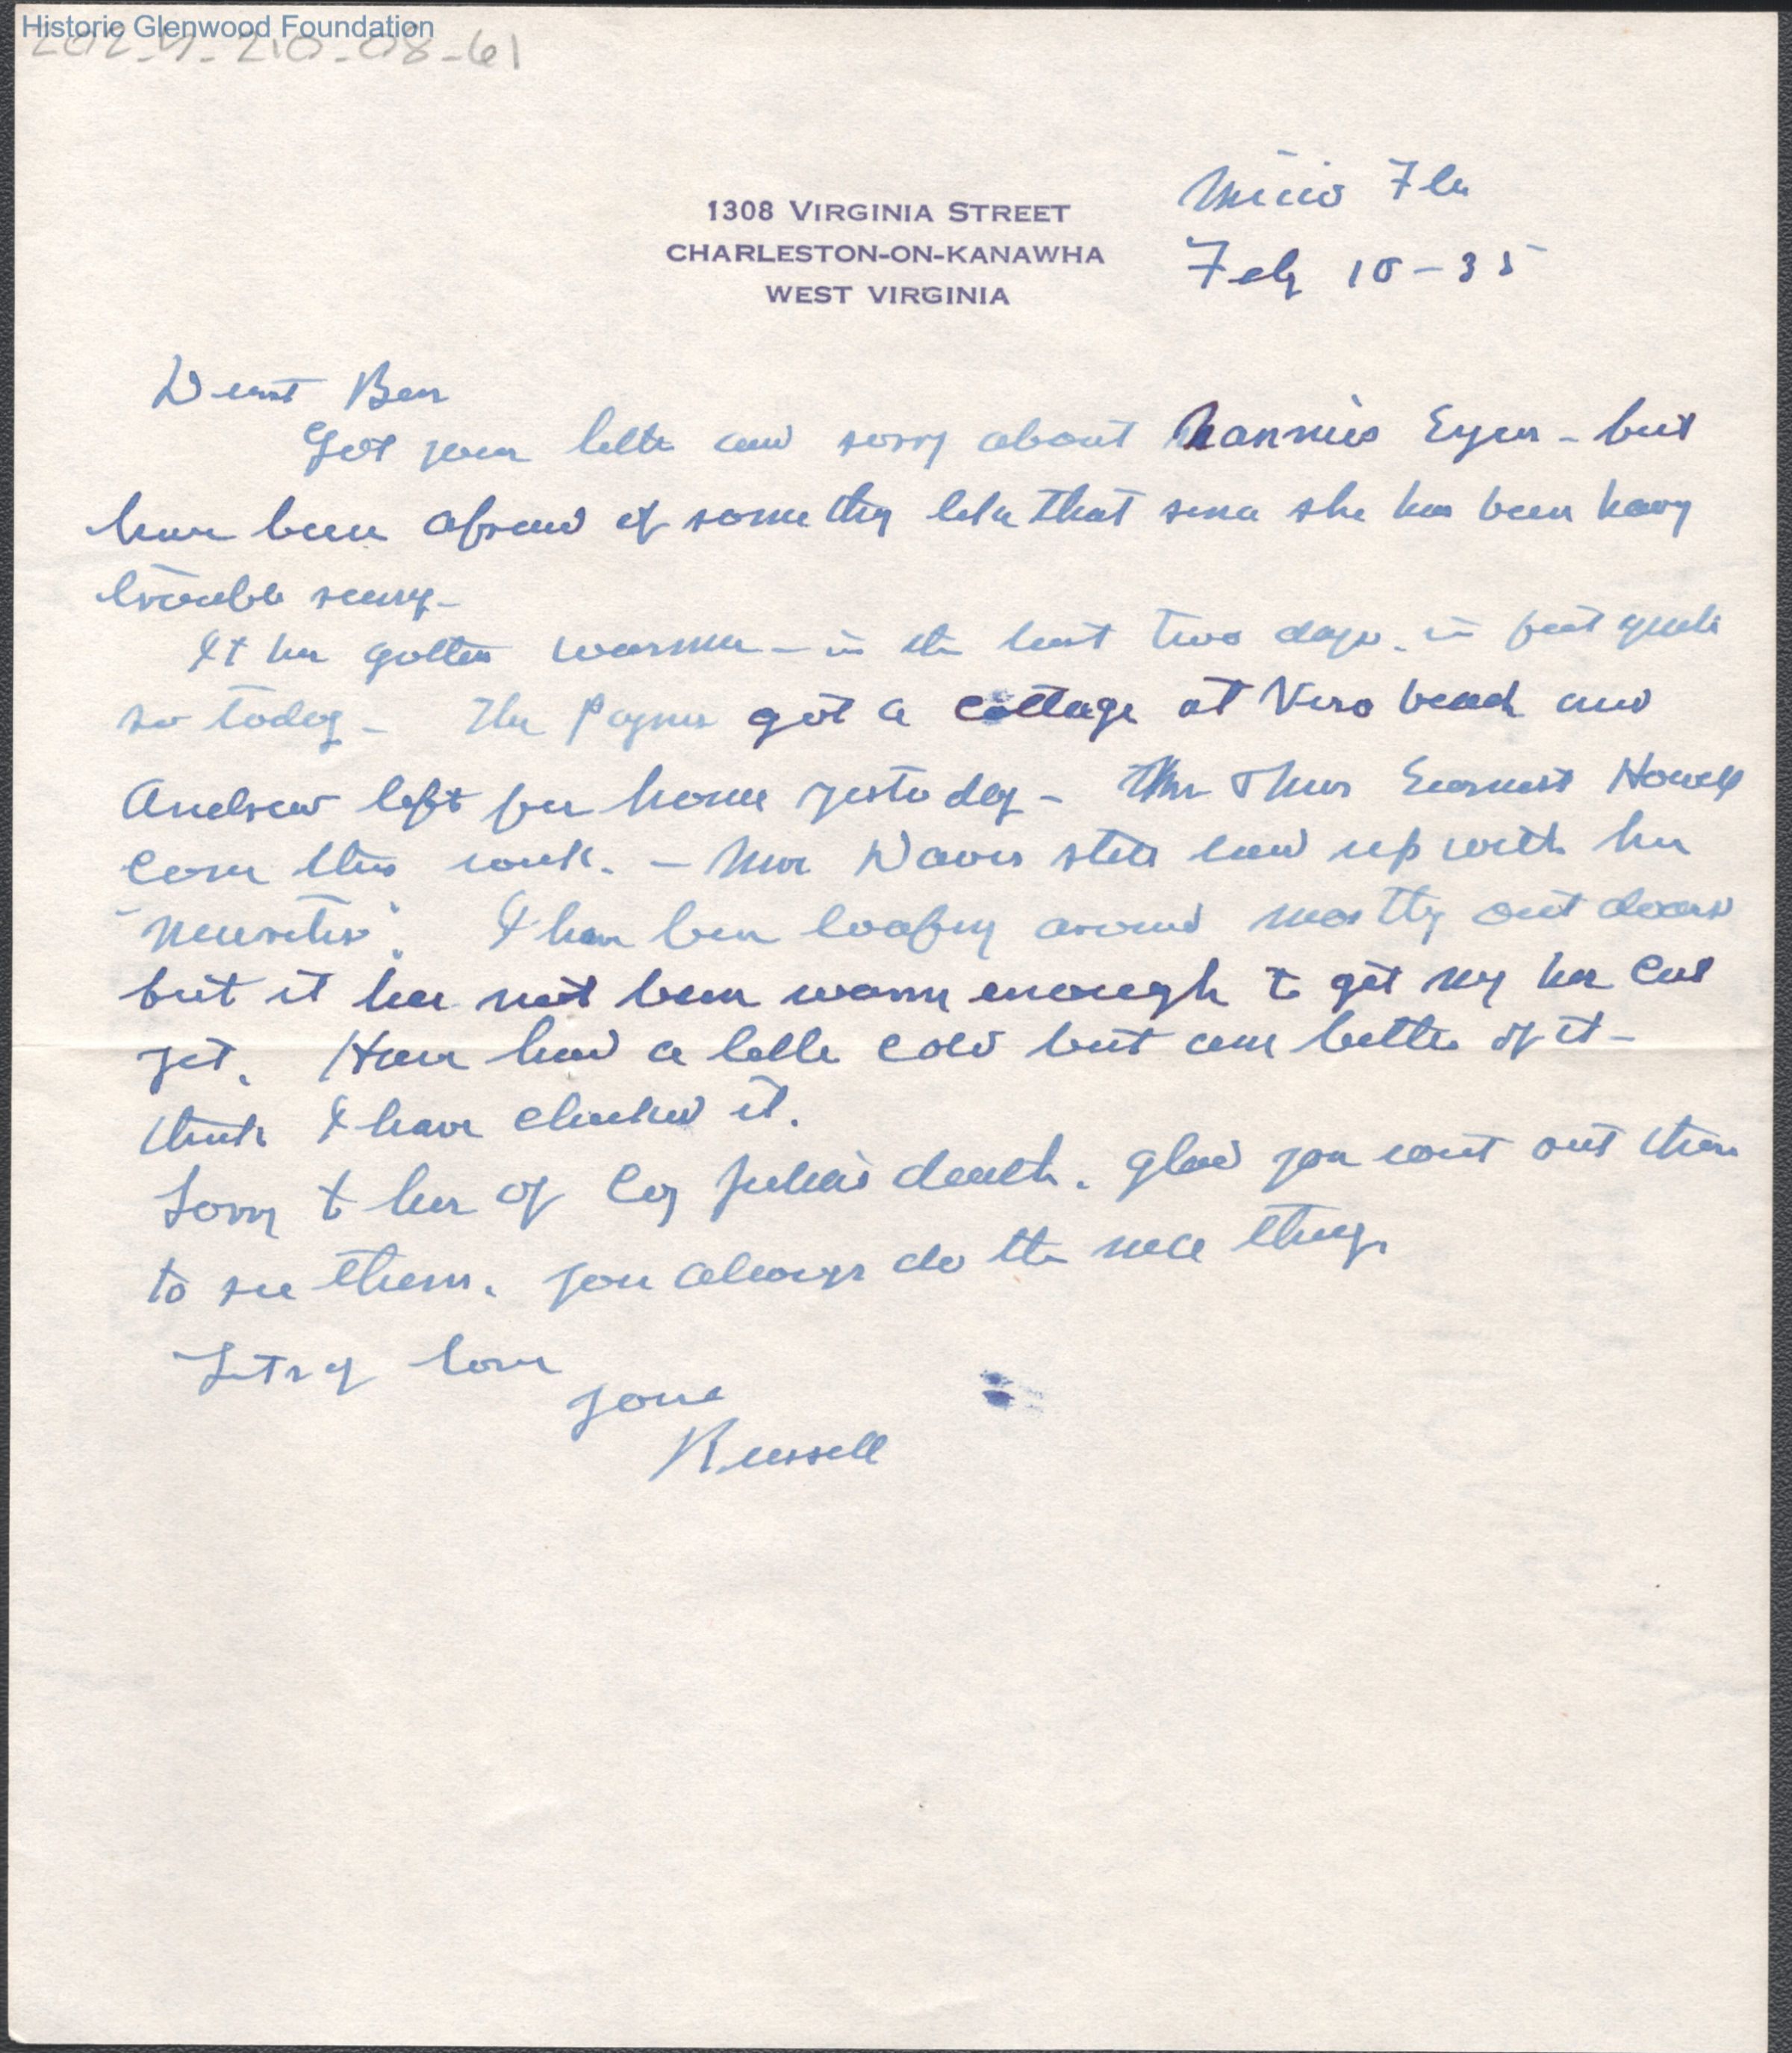 Historic Glenwood Foundation
2024-210-08-61
Micco Fla
1308 VIRGINIA STREET
CHARLESTON-ON-KANAWHA
WEST VIRGINIA
Feby 10-35
Dearest Ben
Got your letter and sorry about Nannie's Eyes - but
have been afraid of something like that since she has been having
trouble seeing -
It has gotten warmer - in the last two days. in fact quite
so today - The Paynes got a cottage at Vero beach and
Andrew left for home yesterday - Earnest Howell
come this week. - Mrs Davis still laid up with her
"neuritis". I have been loafing around mostly out doors
but it has not been warm enough to get my hair cut
yet. Have had a little cold but am better of it -
think I have checked it.
Sorry to hear of Julia's death. glad you went out there
to see them. you always do the nice thing.
Lots of love
yours
Russell